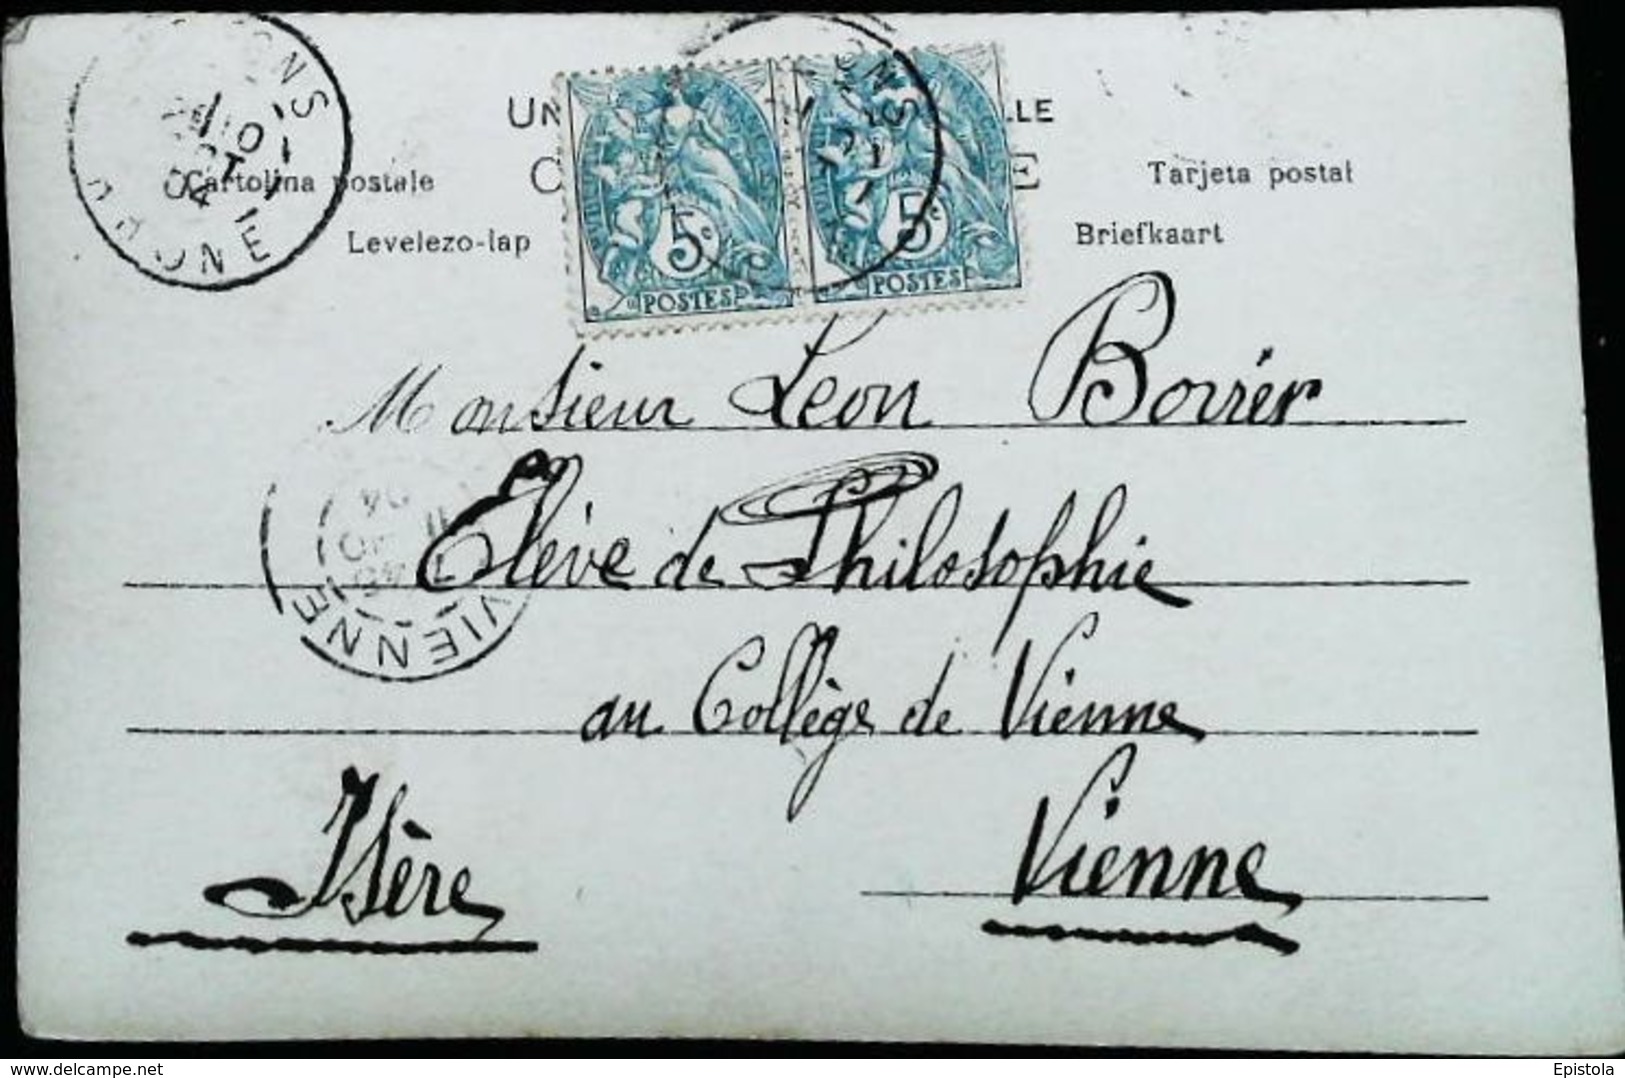 UN LLE
C E
Cartolina postale Tarjeta postal
Levelezo-lap Briefkaart
5c 5c
POSTES POSTES
ONS
RHONE
10
OCT
04
ONS
Monsieur Léon
Elève de Philosophie
au Collège de Vienne
Isère Vienne
VIENNE
04
© www.delcampe.net Epistola